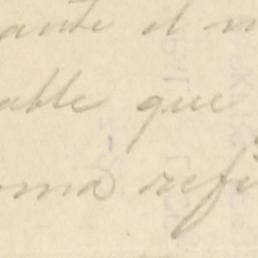 ante el
able que
oma refi